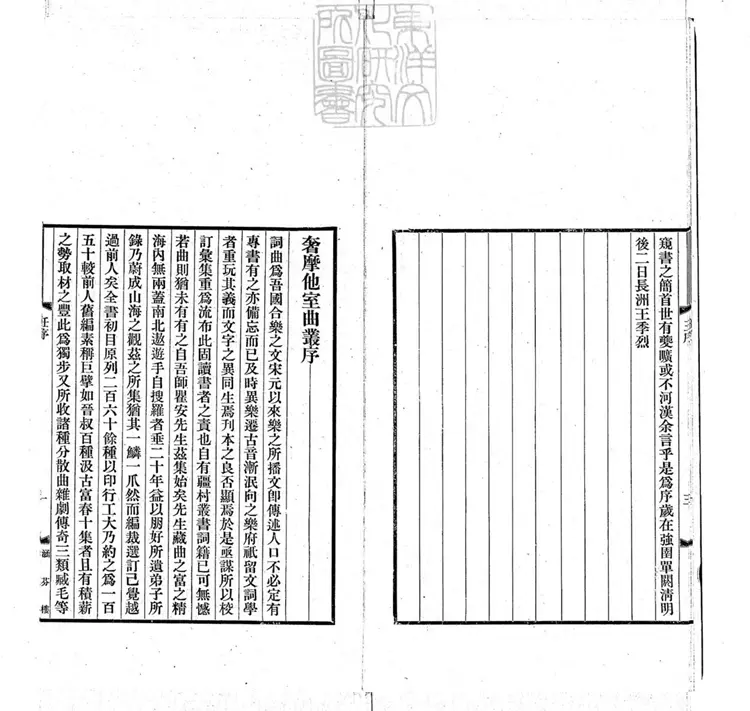 東洋文
化研究
所圖書
窺書之簡首世有夔曠或不河漢余言乎是爲序歲在強圉單閼淸明
後二日長洲王季烈
王序
三
奢摩他室曲叢序
詞曲爲吾國合樂之文宋元以來樂之所播文卽傳述人口不必定有
專書有之亦備忘而已及時異樂遷古音漸泯向之樂府祇留文詞學
者重玩其義而文字之異同生焉刋本之良否顯焉於是亟謀所以校
訂彙集重爲流布此固讀書者之責也自有疆村叢書詞籍已可無憾
若曲則猶未有有之自吾師瞿安先生茲集始矣先生藏曲之富之精
海內無兩蓋南北遨遊手自搜羅者垂二十年益以朋好所遺弟子所
錄乃蔚成山海之觀茲之所集猶其一鱗一爪然而編裁選訂已覺越
過前人矣全書初目原列二百六十餘種以印行工大乃約之爲一百
五十較前人舊編素稱巨擘如晉叔百種汲古富春十集者且有積薪
之勢取材之豐此爲獨步又所收諸種分散曲雜劇傳奇三類臧毛等
任序
一
涵芬樓